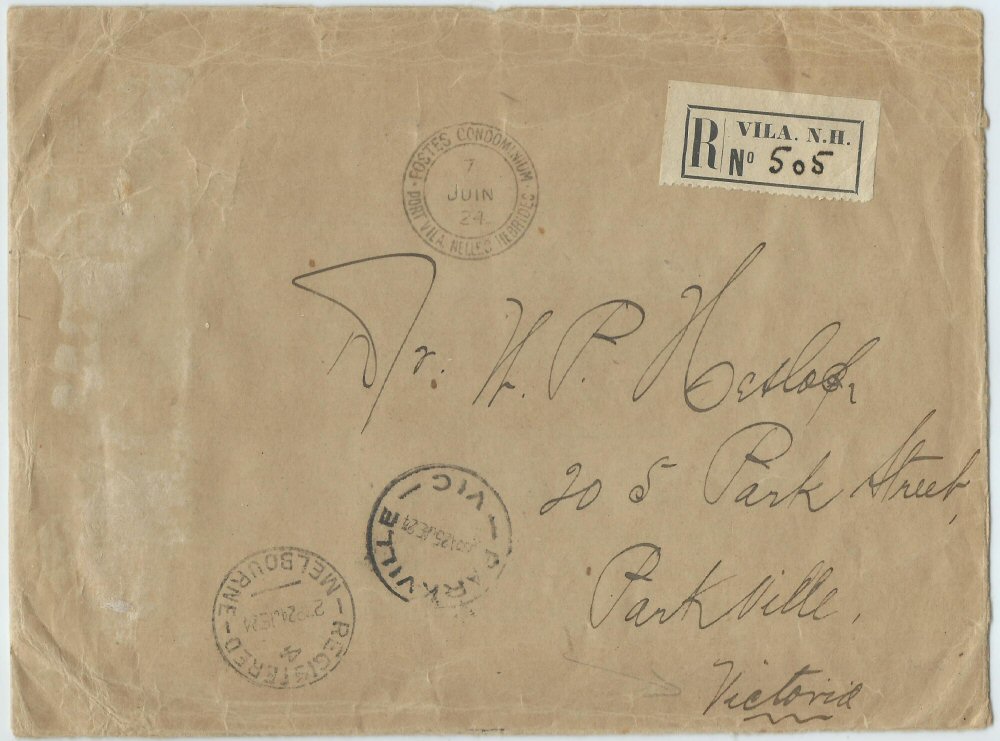 POSTES CONDOMINIUM
7
JUIN
24
PORT VILA NELLES HEBRIDES
R
VILA. N.H.
No 505
Dr. H. P. Heslop,
205 Park Street,
Parkville,
Victoria
PARKVILLE VIC
REGISTERED MELBOURNE
4